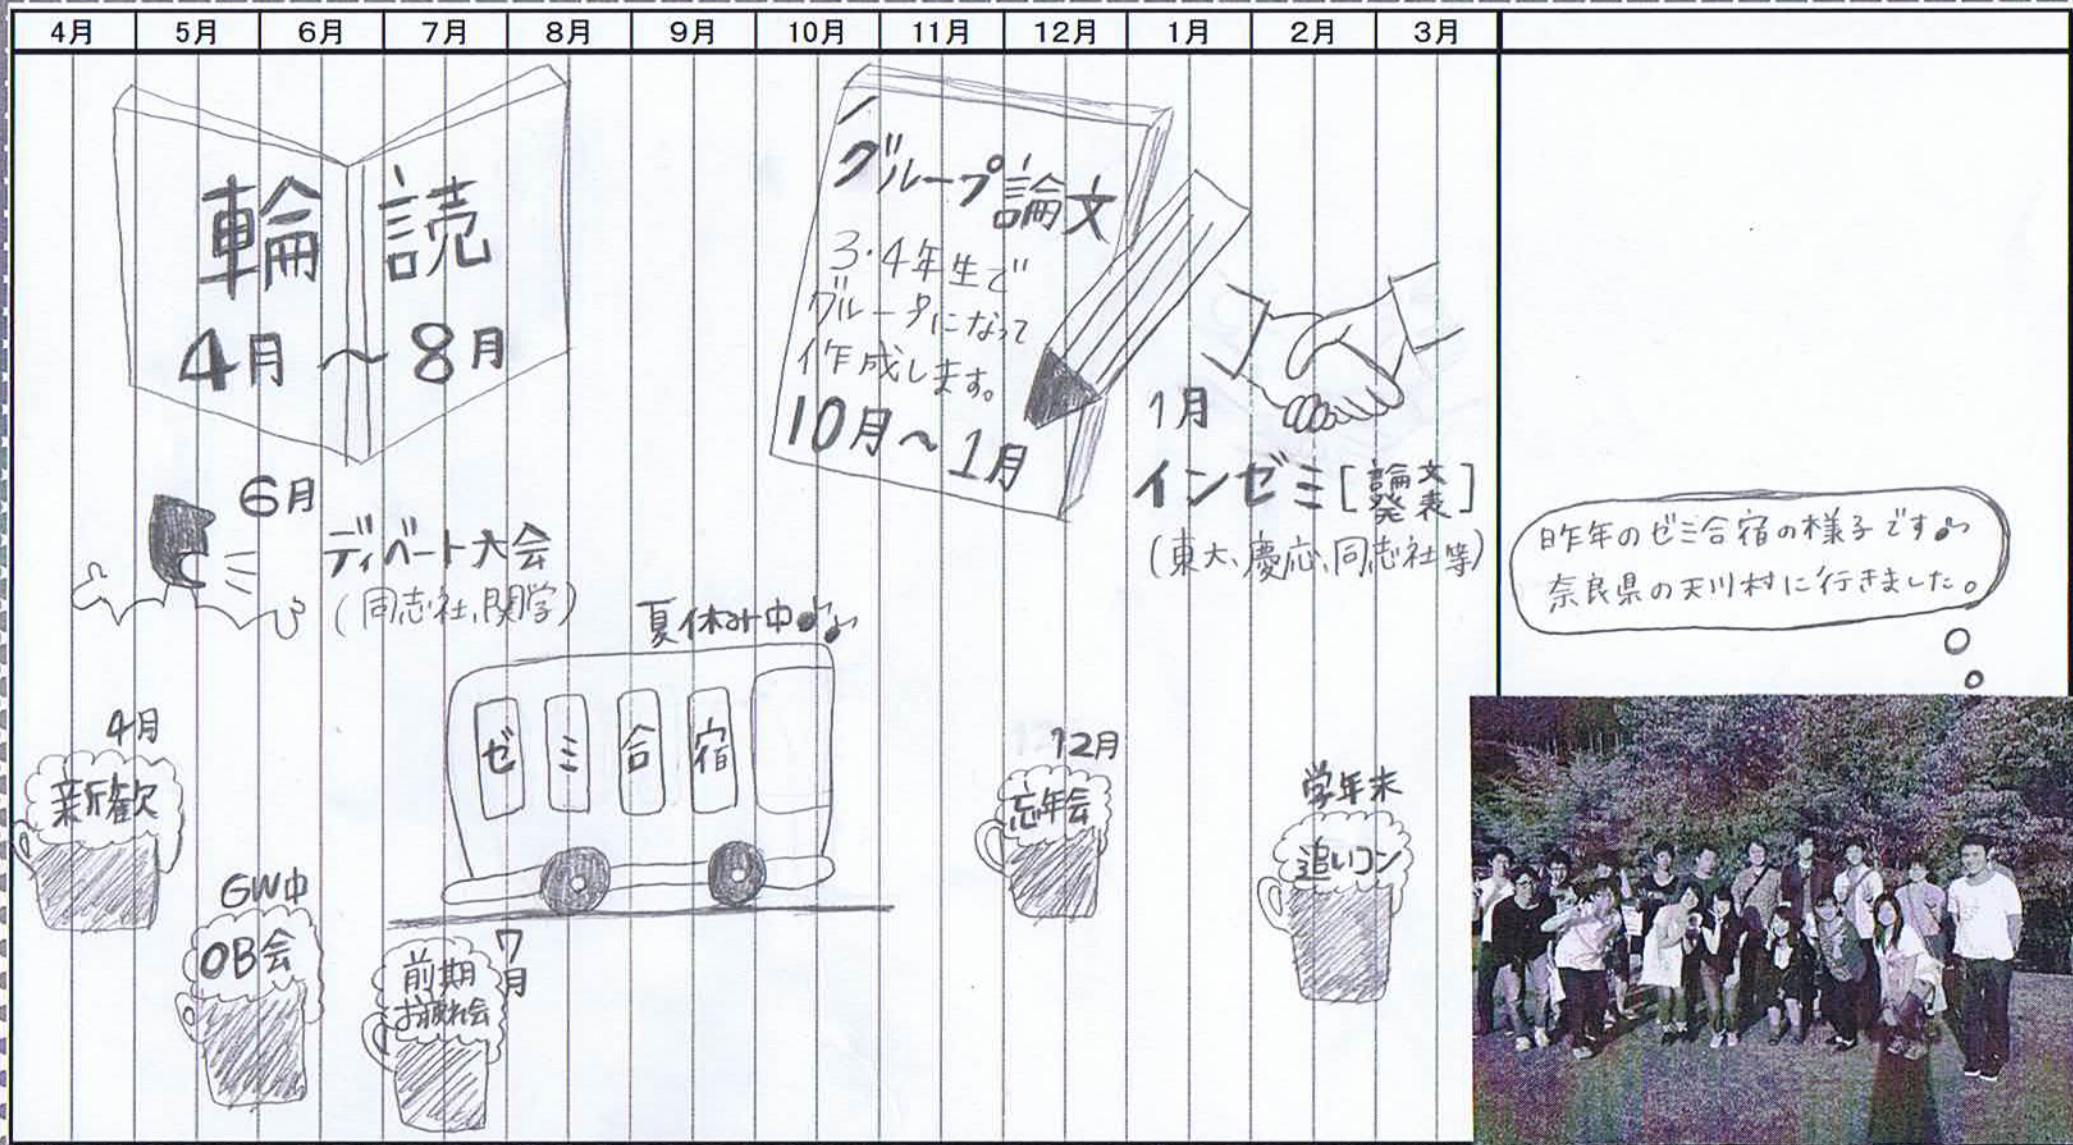 4月 5月 6月 7月 8月 9月 10月 11月 12月 1月 2月 3月
輪読
4月～8月
グループ論文
3・4年生で
グループになって
作成します。
10月～1月
1月
インゼミ[論文発表]
(東大、慶応、同志社等)
6月
ディベート大会
(同志社、関学)
夏休み中♪♪
ゼミ合宿
4月
新歓
GW中
OB会
7月
前期
お疲れ会
12月
忘年会
学年末
追いコン
昨年のゼミ合宿の様子です♪
奈良県の天川村に行きました。